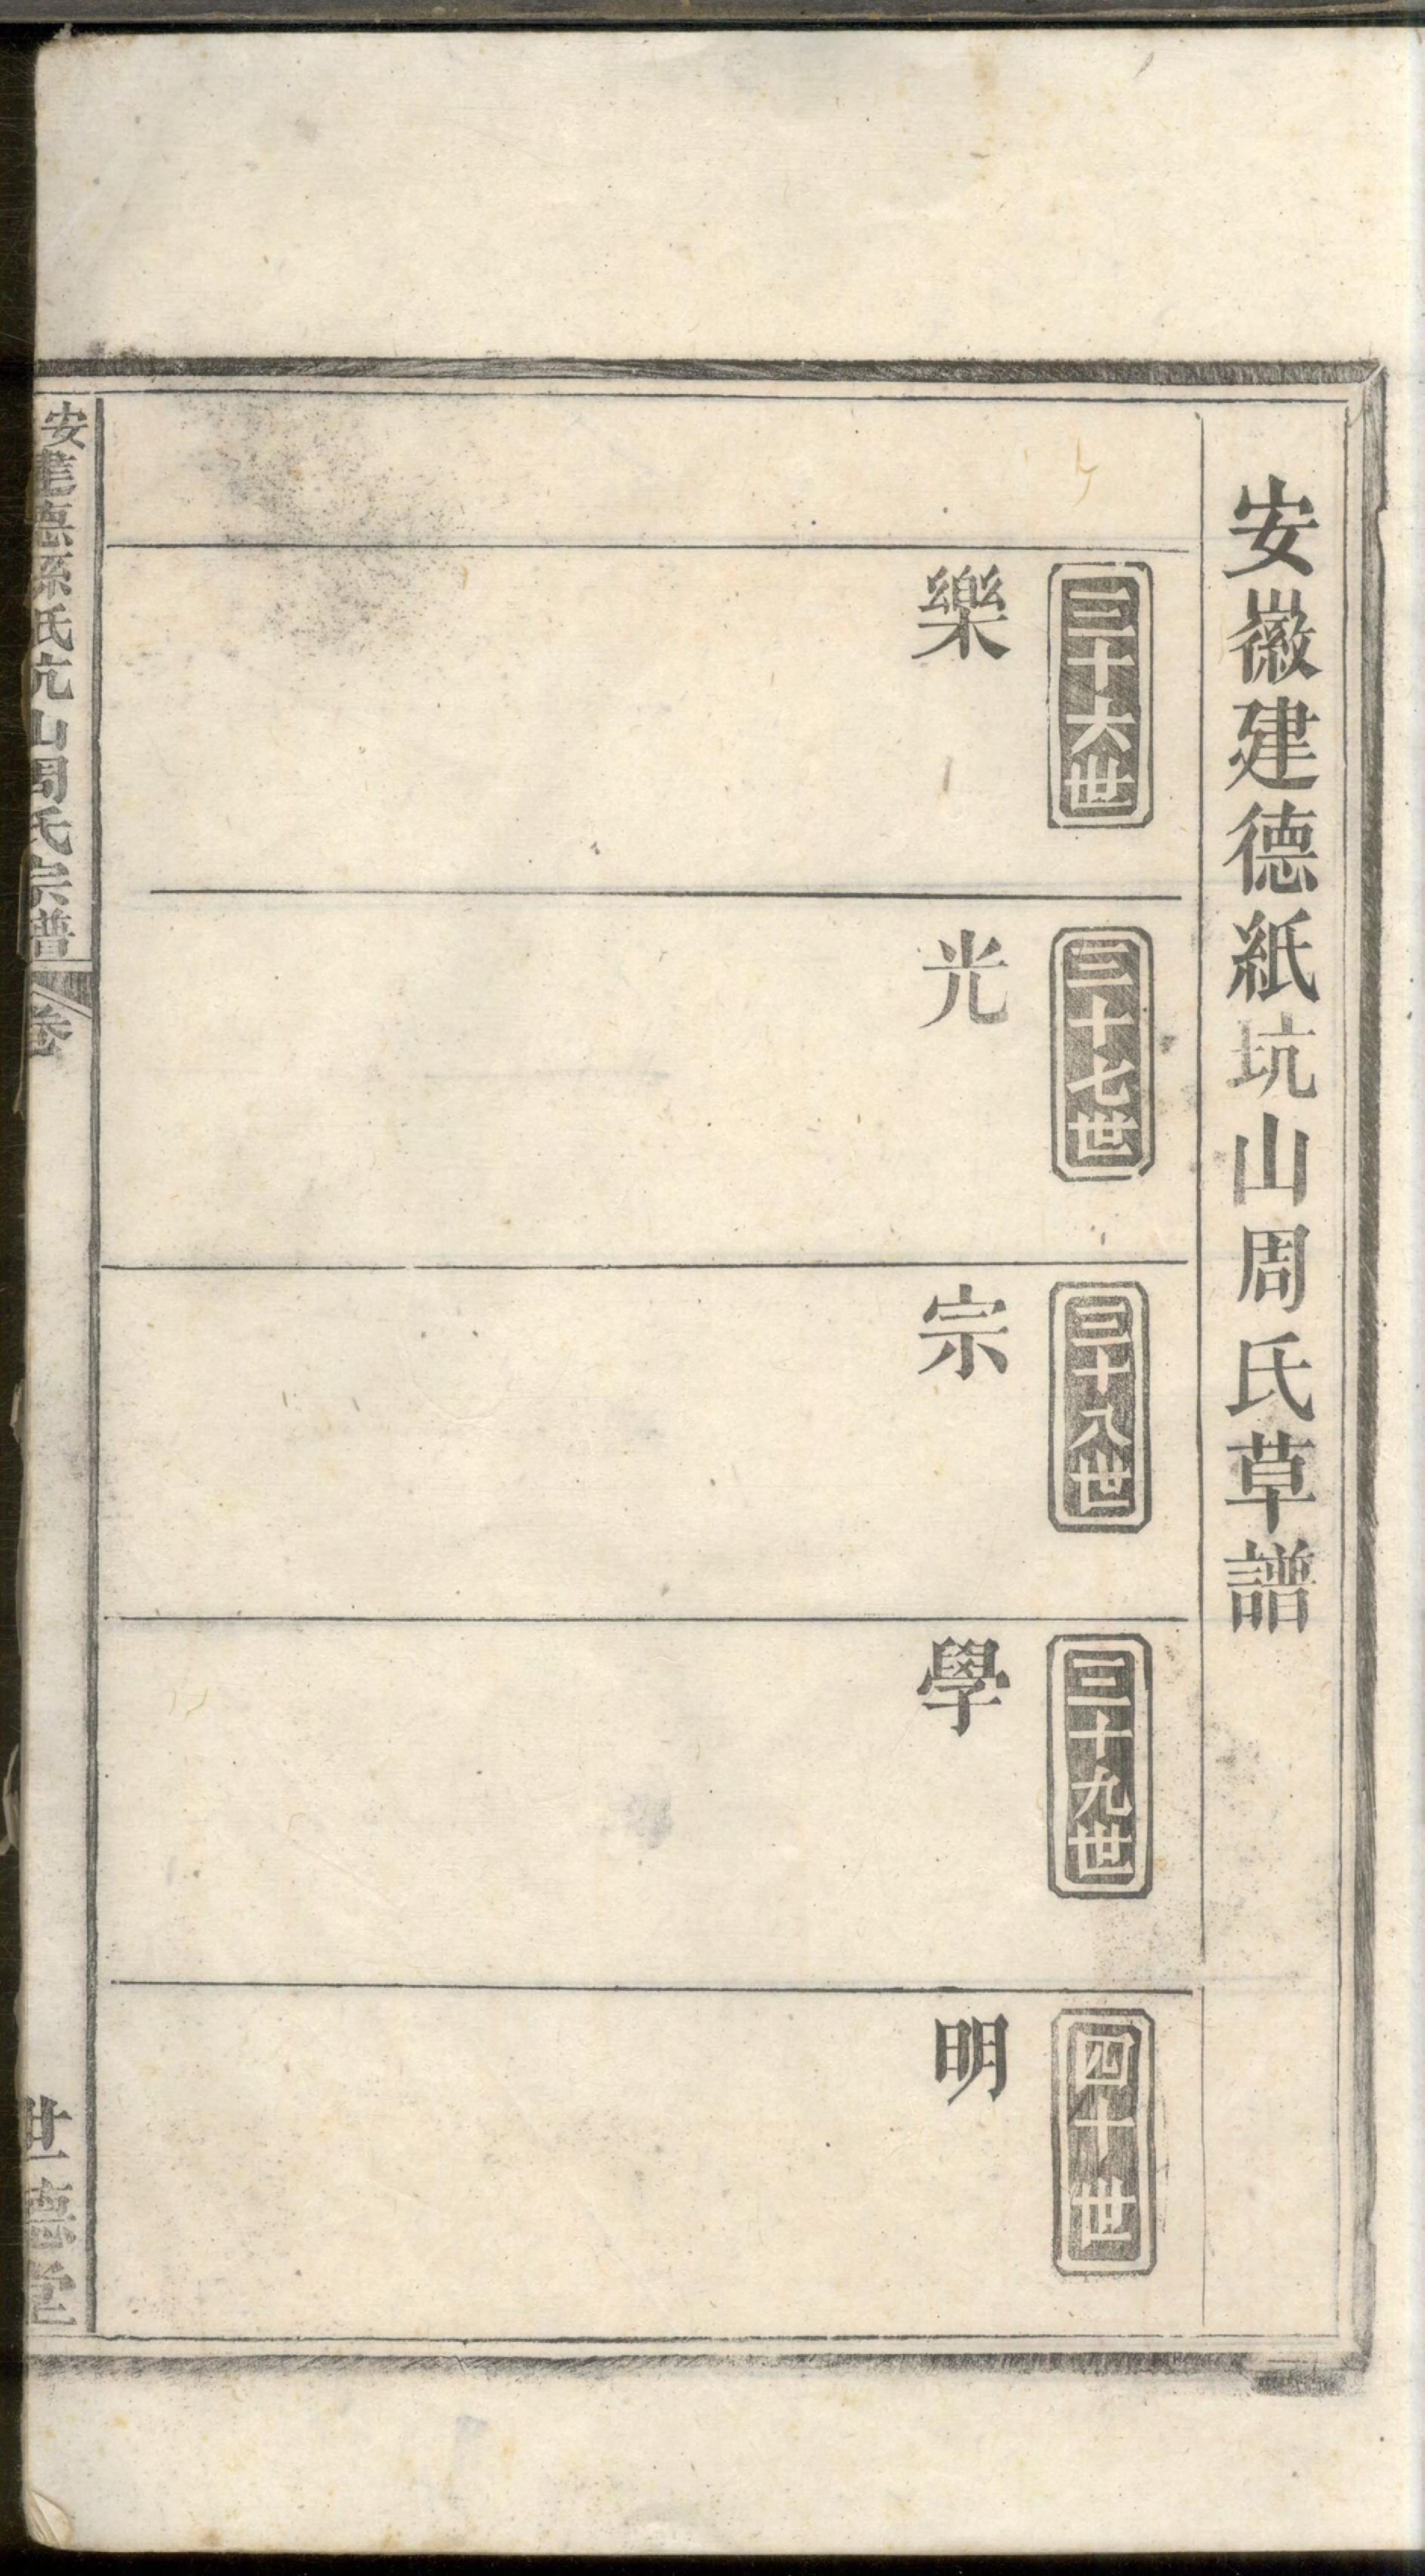 安徽建德紙坑山周氏草譜
三十六世
樂
三十七世
光
三十八世
宗
三十九世
學
四十世
明
安建德紙氏坑山周氏宗譜
卷
世德堂